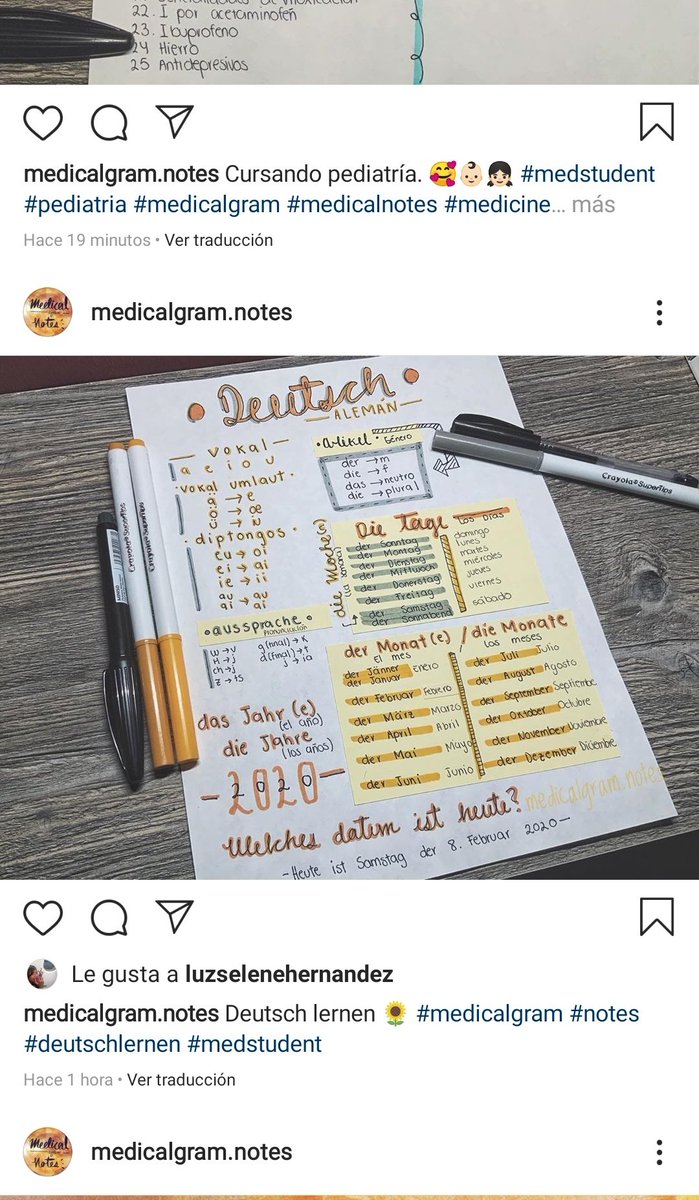 22. I por acetaminofen
23. Ibuprofeno
24 Hierro
25 Antidepresivos
medicalgram.notes Cursando pediatría. 🥰👶🏻👧🏻 #medstudent
#pediatria #medicalgram #medicalnotes #medicine... más
Hace 19 minutos • Ver traducción
Medical
Notes
medicalgram.notes
Deutsch
ALEMÁN
Vokal
a e i o u
vokal umlaut
diptongos
eu → oi
ei → ai
ie → ii
aussprache
PRONUNCIACIÓN
w → v
H → j
ch → j
z → ts
g(final) → k
d(final) → t
j → ia
Artikel Género
der → m
die → f
das → neutro
die → plural
Die Tage Los DÍAS
die Woche(n)
(la semana)
der Sonntag domingo
der Montag lunes
der Dienstag martes
der Mittwoch miércoles
der Donnerstag jueves
der Freitag viernes
der Samstag sábado
der Sonnabend
der Monat(e) / die Monate
el mes los meses
der Jänner Enero
der Januar
der Februar Febrero
der März Marzo
der April Abril
der Mai Mayo
der Juni Junio
der Juli Julio
der August Agosto
der September Septiembre
der Oktober Octubre
der November Noviembre
der Dezember Diciembre
das Jahr (e)
(el año)
die Jahre
(los años)
-2020-
Welches datem ist heute?
medicalgram.notes
-Heute ist Samstag der 8. Februar 2020-
Crayola SuperTips
Crayola SuperTips
Crayola SuperTips
Le gusta a luzselenehernandez
medicalgram.notes Deutsch lernen 🌻 #medicalgram #notes
#deutschlernen #medstudent
Hace 1 hora • Ver traducción
Medical
Notes
medicalgram.notes